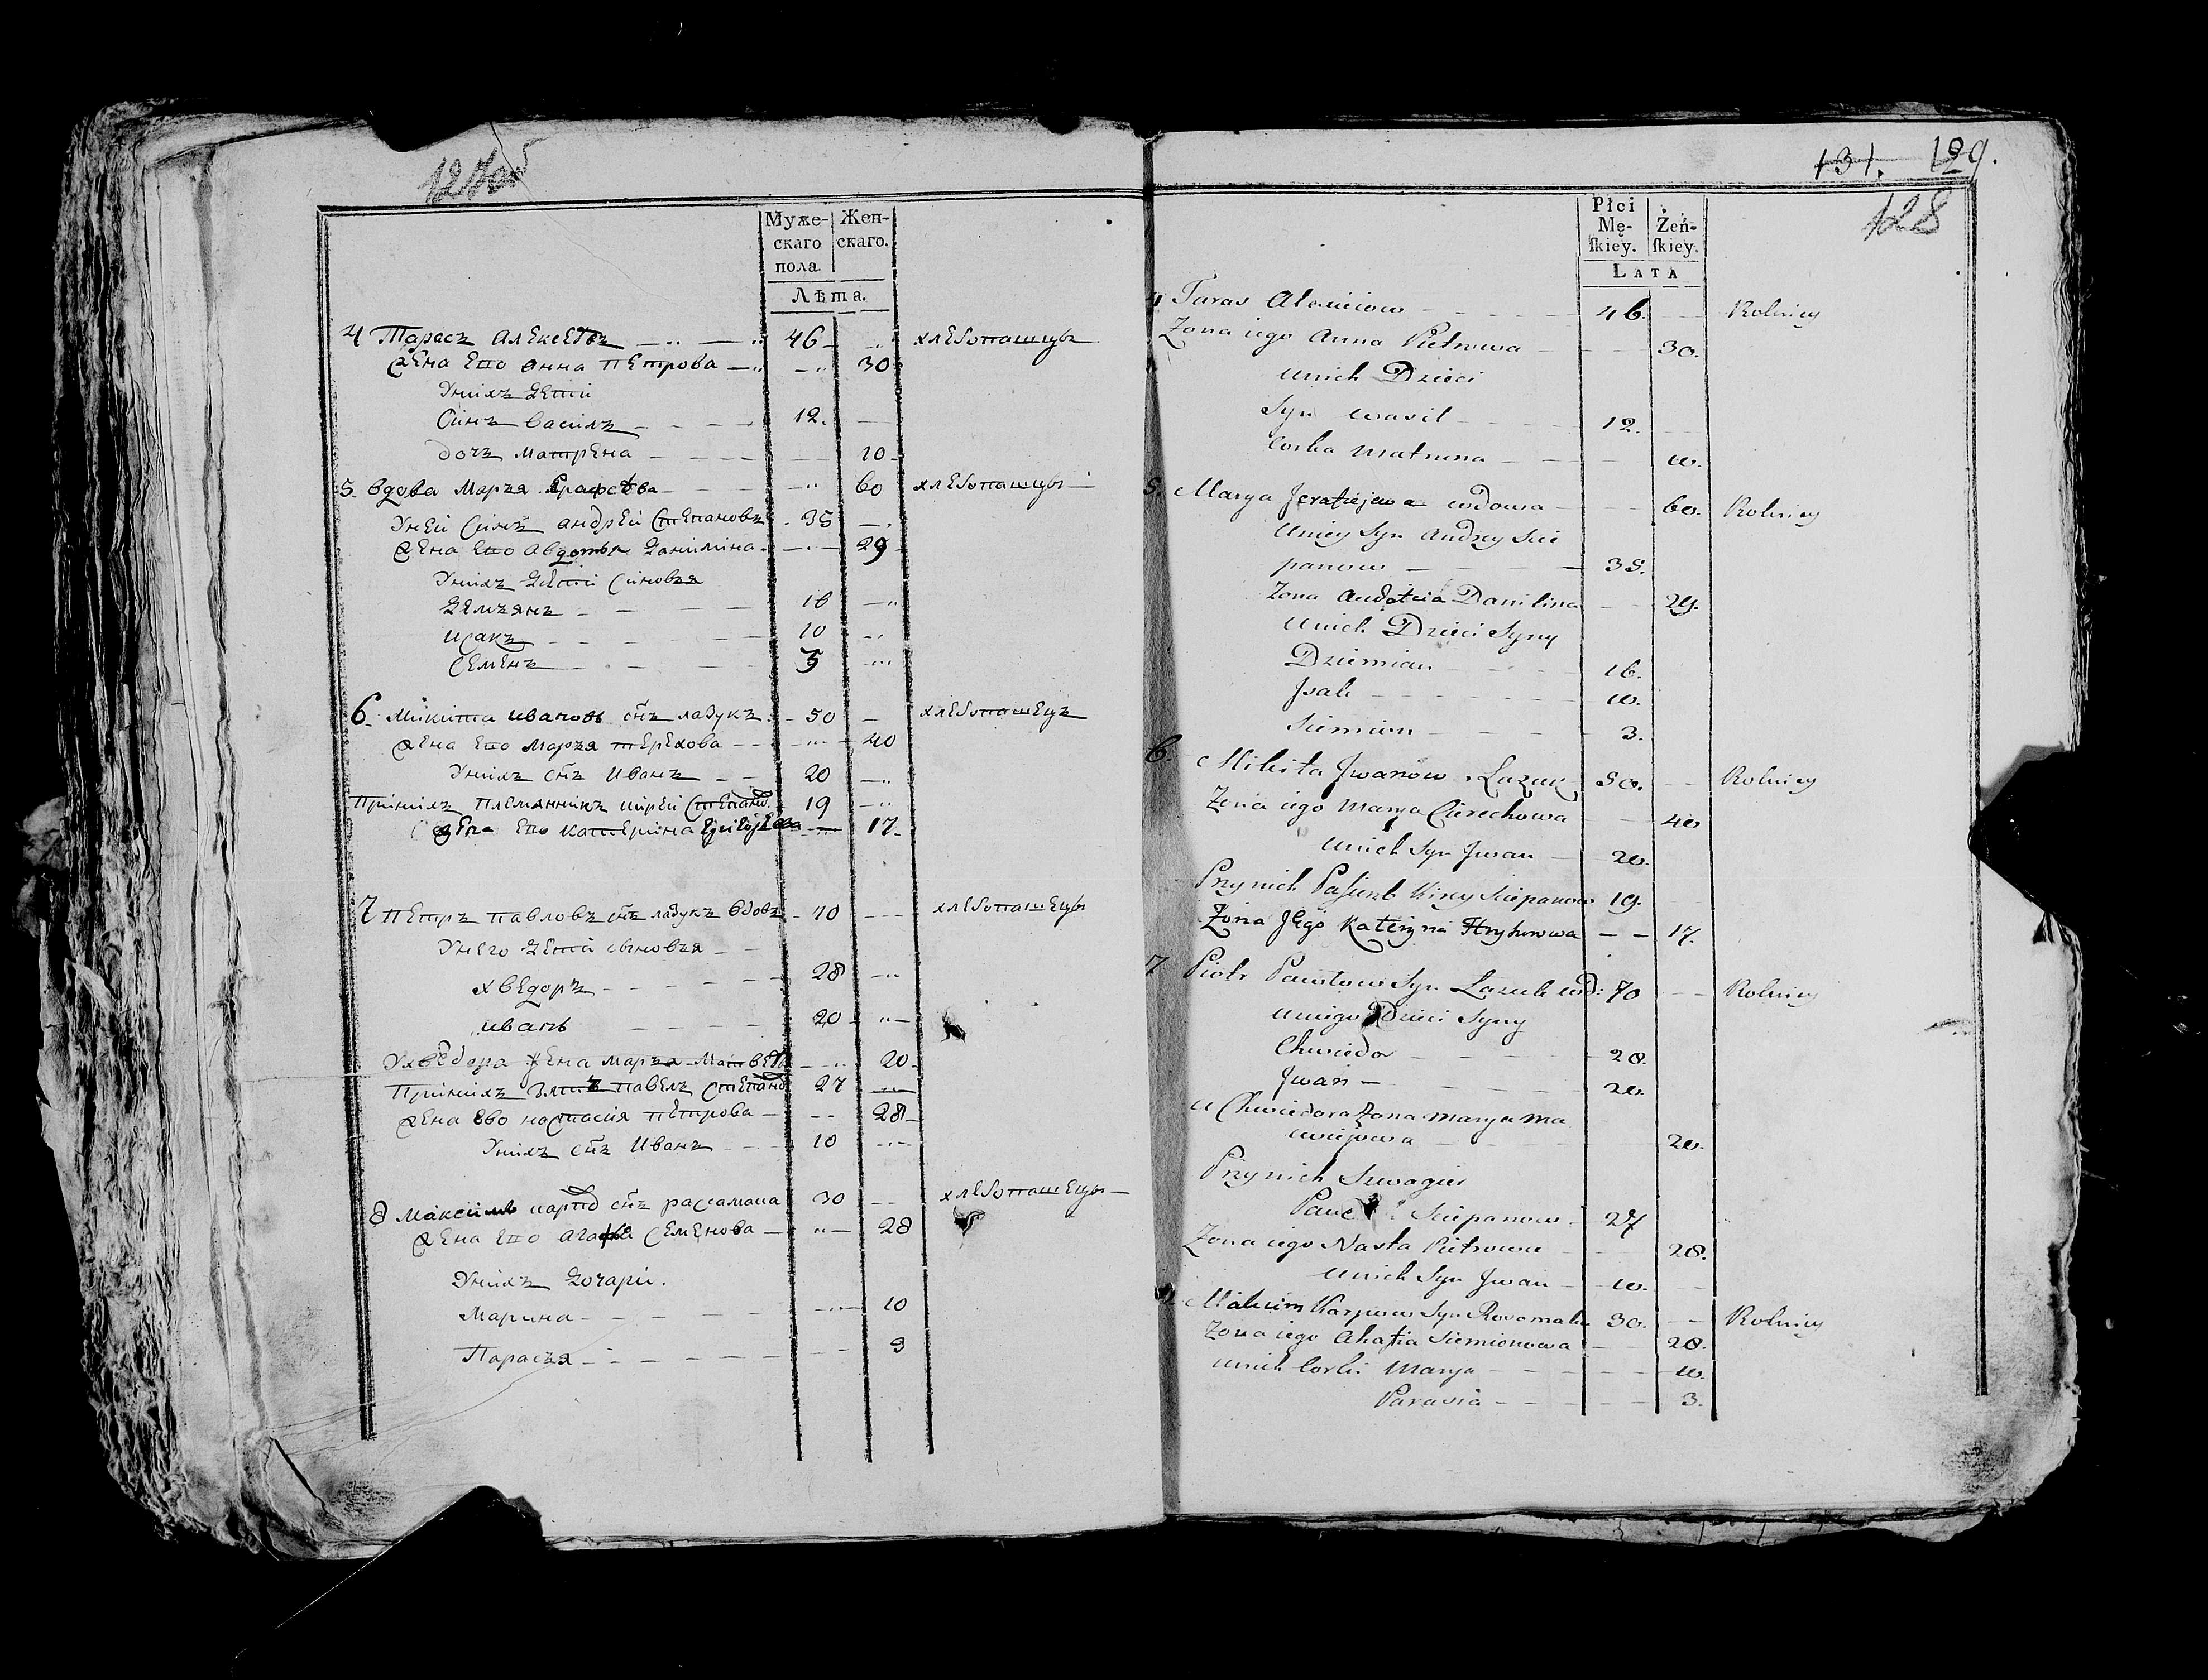 Муже-
скаго
пола.
Жен-
скаго.
Лѣта.
4 Тарасъ Алексеевъ 46 хлебопашцы
жена его анна петрова 30
Унихъ дети
Синъ василъ 12.
дочъ Матрена 10
5. вдова Маръя 60 хлебопашцы
Уней синъ андрей Степановъ 35
жена его авдотья данилина 29
Унихъ дети синовъя
демъянъ 16
исакъ 10
семенъ 3
6. Микита ивановъ снъ лазукъ 50 хлебопашецъ
жена его маръя терехова 40
Унихъ снъ иванъ 20
Принихъ племянникъ кирей Степано 19
жена его катерина 17
7 петръ павловъ снъ лазукъ вдовъ 70 хлебопашецы
Унего дети синовъя
хведоръ 28
иванъ 20
Ухведора жена маръя Матвева 20
Принихъ зять павелъ степано 27
жена ево настасия петрова 28
Унихъ снъ иванъ 10
8 Максимъ карпо снъ рассамаха 30 хлебопашецы
жена его агафья семенова 28
Унихъ дочари.
Марина 10
Парасъя 3
131. 129.
128
Płci
Mę-
skiey.
Żeń-
skiey.
Lata
4 Taras Alexieiow 46. Rolnicy
Zona iego Anna Pietrowa 30.
unich Dzieci
Syn wasil 12.
Corka matruna 10.
5. Marya Jerafiejewa wdowa 60. Rolnicy
Uniey Syn Andrzy Scie
panow 35.
Zona Audotia Danilina 29.
Unich Dzieci Syny
Dziemian 16.
Jsak 10.
Siemion 3.
6. Mikita Jwanow Lazuk 50. Rolnicy
Zona iego Marya Cierechowa 40
Unich Syn Jwan 20.
Przynich Pasierb Kirey Sciepanow 19.
Zona Jego Kateryna Hryhorowa 17.
7 Piotr Pawłow Syn Lazuk wd: 70 Rolnicy
Uniego Dzieci Syny
Chwiedor 28.
Jwan 20.
u Chwiedora Zona Marya Ma
cwiejowa 20.
Przynich Szwagier
Sciepanow 27
Zona iego Nasta Pietrowna 28.
Unich Syn Jwan 10.
Maksim Karpow Syn Rosomaka 30. Rolnicy
Zona iego Ahafia Siemionowa 28.
unich Corki Marya 10.
Parasia 3.